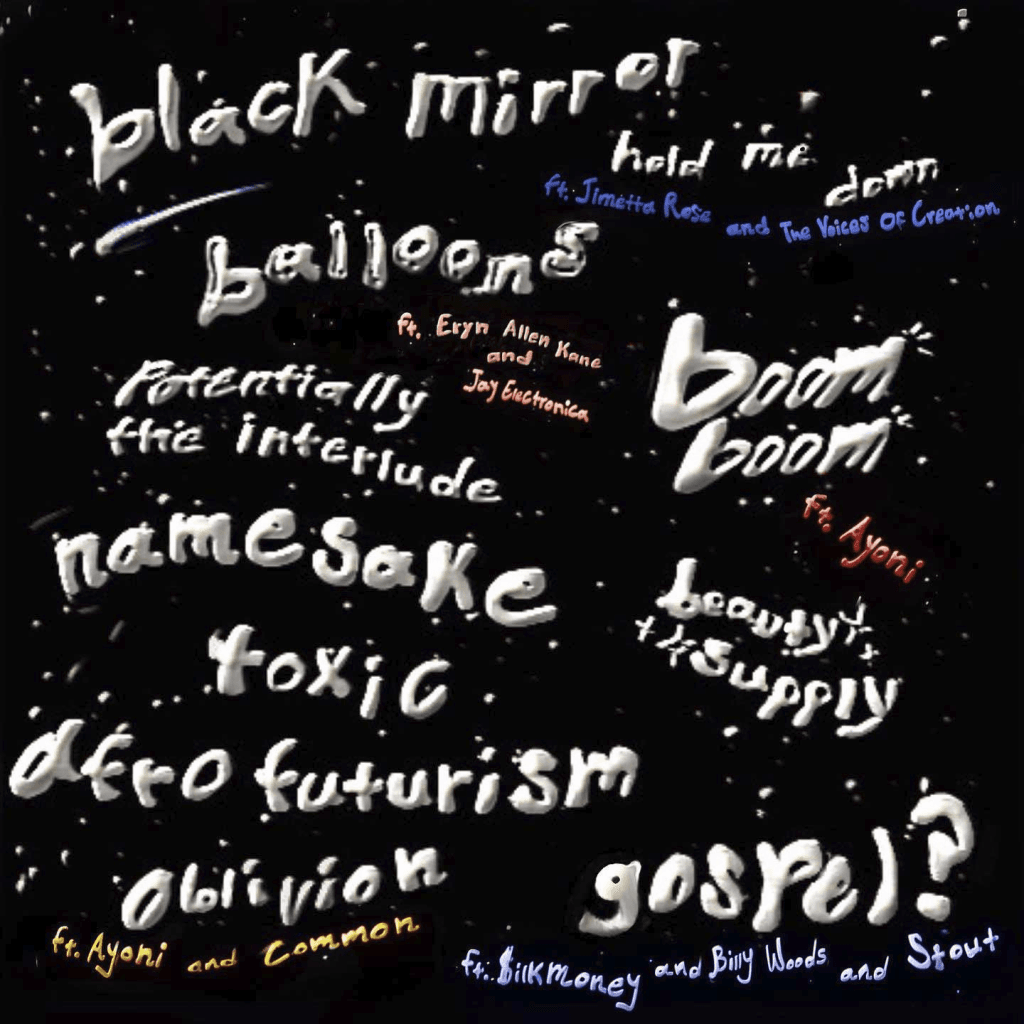 black mirror
hold me down
ft. Jimetta Rose and The Voices Of Creation
balloons
ft. Eryn Allen Kane
and
Jay Electronica
boom
boom
ft. Ayoni
Potentially
the interlude
namesake
beauty
supply
toxic
afro futurism
oblivion
ft. Ayoni and Common
gospel?
ft. $ilkmoney and Billy Woods and Stout